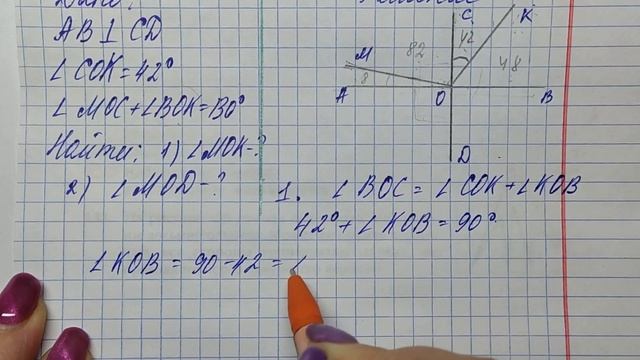 Дано:
AB ⊥ CD
∠ COK = 42°
∠ MOC + ∠BOK = 130°
Найти: 1) ∠MOK - ?
2) ∠ MOD - ?
C K
42
82
M
8
48
A O B
D
1. ∠ BOC = ∠ COK + ∠KOB
42° + ∠ KOB = 90°
∠ KOB = 90 - 42 =